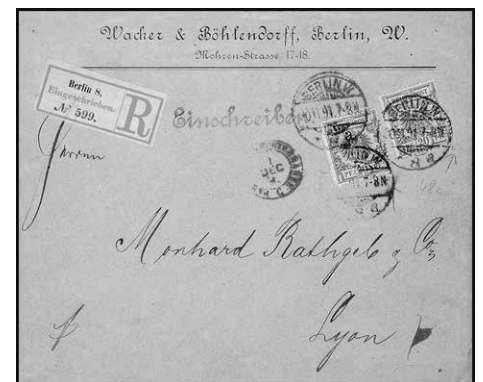 Wacker & Böhlendorff, Berlin, W.
Mohren-Strasse 17-18.
Berlin 8.
Eingeschrieben.
№ 599.
R
Einschreiben
BERLIN W
91.7-8N
BERLIN W
91.7-8N
20
7-8N
1
DEC
Herren
Monhard Rathgeb & Co,
Lyon